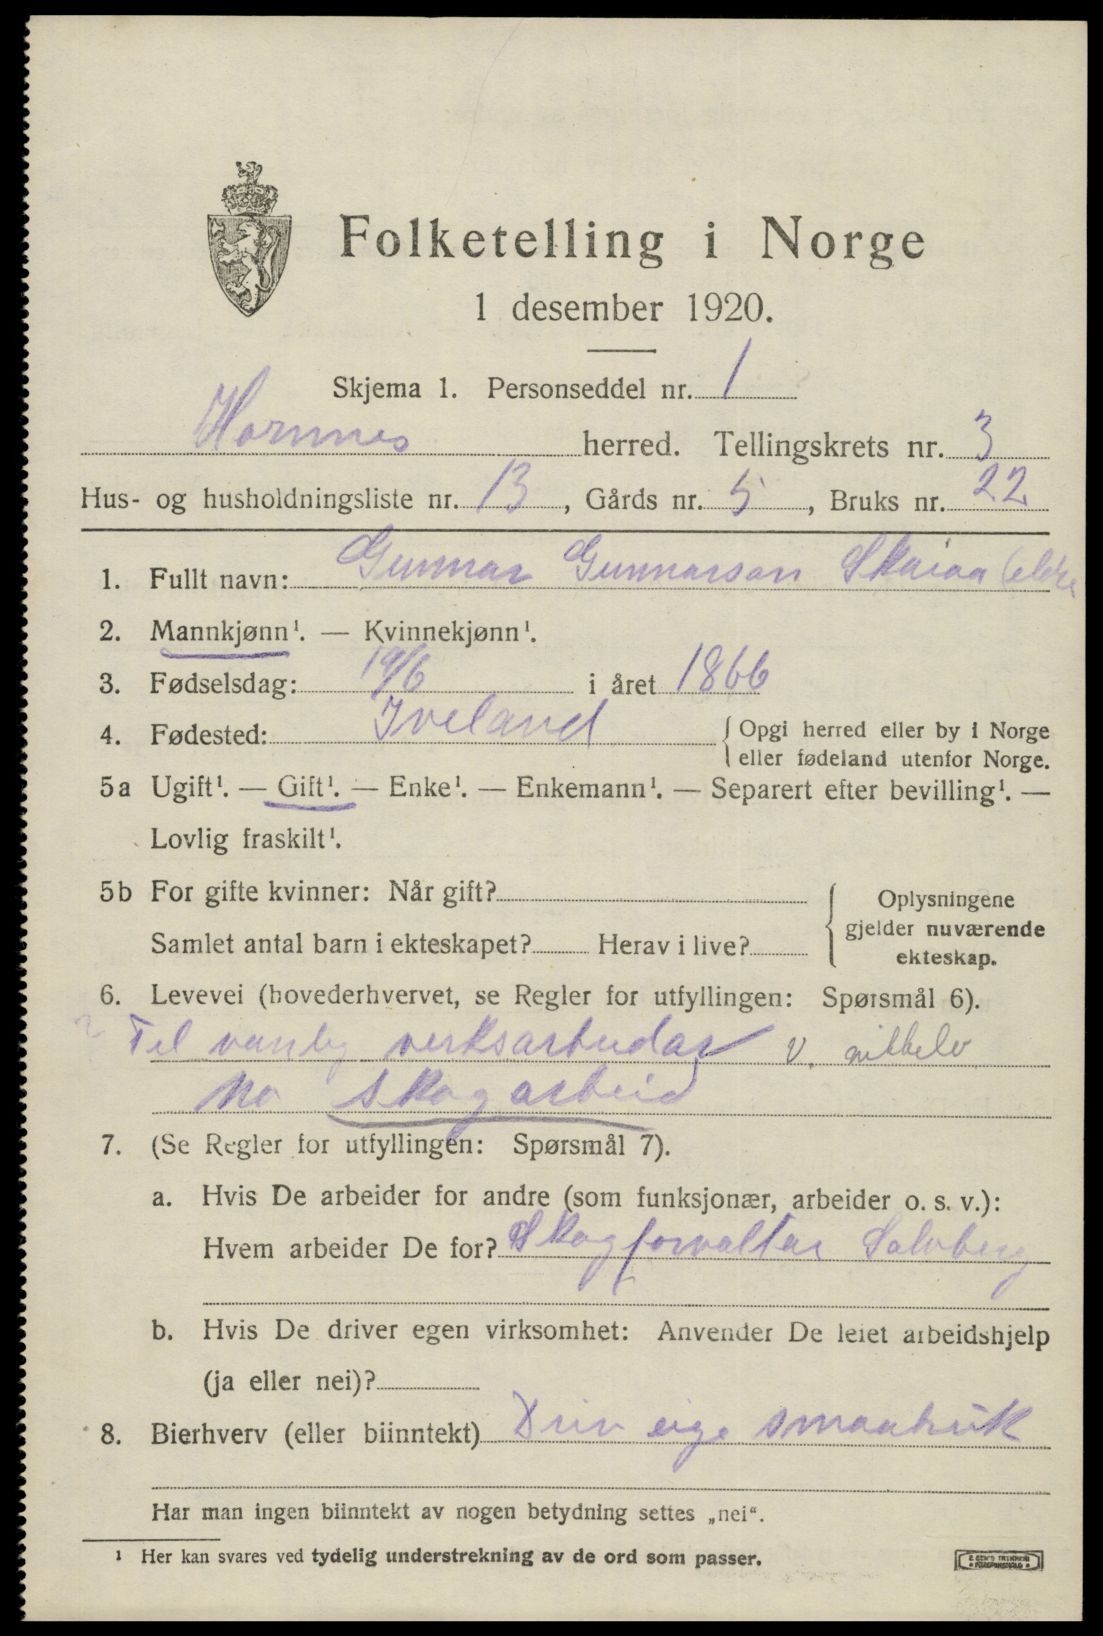 Folketelling i Norge
1 desember 1920.
Skjema 1. Personseddel nr. 1
Hornnes herred. Tellingskrets nr. 3
Hus- og husholdningsliste nr. 13, Gårds nr. 5, Bruks nr. 22
1. Fullt navn: Gunnar Gunnarson Skaiaa (eldre
2. Mannkjønn¹. — Kvinnekjønn¹.
3. Fødselsdag: 19/6 i året 1866
4. Fødested: Iveland { Opgi herred eller by i Norge
eller fødeland utenfor Norge.
5a Ugift¹. — Gift¹. — Enke¹. — Enkemann¹. — Separert efter bevilling¹. —
Lovlig fraskilt¹.
5b For gifte kvinner: Når gift? { Oplysningene
gjelder nuværende
Samlet antal barn i ekteskapet? Herav i live?
ekteskap.
6. Levevei (hovederhvervet, se Regler for utfyllingen: Spørsmål 6).
Til vanleg verksarbeidar v. nikkelv
no skogarbeid
7. (Se Regler for utfyllingen: Spørsmål 7).
a. Hvis De arbeider for andre (som funksjonær, arbeider o. s. v.):
Hvem arbeider De for? Skogforvaltar Salvberg
b. Hvis De driver egen virksomhet: Anvender De leiet arbeidshjelp
(ja eller nei)?
8. Bierhverv (eller biinntekt) Driv eige smaabruk
Har man ingen biinntekt av nogen betydning settes „nei“.
¹ Her kan svares ved tydelig understrekning av de ord som passer.